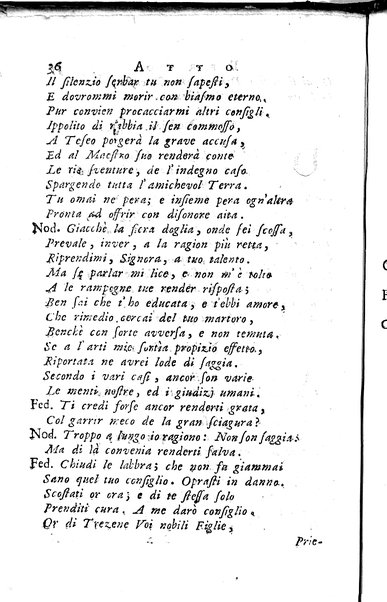 36 ATTO
Il silenzio serbar tu non sapesti,
E dovrommi morir con biasmo eterno.
Pur convien procacciarmi altri consigli.
Ippolito di rabbia il sen commosso,
A Teseo porgerà la grave accusa,
Ed al Maestro suo renderà conto
Le rie sventure, de l'indegno caso
Spargendo tutta l'amichevol Terra.
Tu omai ne pera; e insieme pera ogn'altra
Pronta ad offrir con disonore aita.
Nod. Giacchè la fiera doglia, onde sei scossa,
Prevale, inver, a la ragion più retta,
Riprendimi, Signora, a tuo talento.
Ma se parlar mi lice, e non m'è tolto
A le rampogne tue render risposta;
Ben sai che t'ho educata, e t'ebbi amore,
Che rimedio cercai del tuo martoro,
Benchè con sorte avversa, e non temuta.
Se a l'arti mie sortìa propizio effetto,
Riportata ne avrei lode di saggia.
Secondo i varj casi, ancor son varie
Le menti nostre, ed i giudizj umani.
Fed. Ti credi forse ancor renderti grata,
Col garrir meco de la gran sciagura?
Nod. Troppo a lungo io ragiono: Non son saggia;
Ma di là convenìa renderti salva.
Fed. Chiudi le labbra; che non fu giammai
Sano quel tuo consiglio. Oprasti in danno.
Scostati or ora; e di te stessa solo
Prenditi cura. A me darò consiglio.
Or di Trezene Voi nobili Figlie,
Prie-